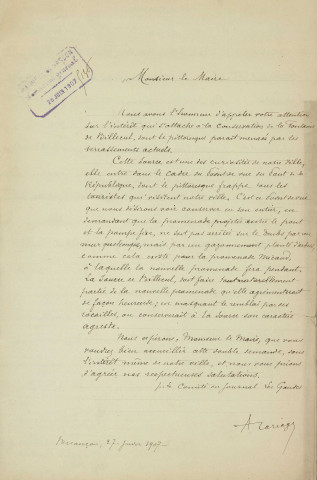 26 JUIN 1907
Monsieur le Maire
Nous avons l'honneur d'appeler votre attention
sur l'intérêt qui s'attache à la conservation de la fontaine
de Billecul, dont le pittoresque paraît menacé par les
terrassements actuels.
Cette source est une des curiosités de notre ville,
elle entre dans le cadre du bout de vue du Pont de la
République, dont le pittoresque frappe tous les
touristes qui visitent notre ville. C'est ce bout de vue
que nous désirons voir conserver en son entier, en
demandant que la promenade projetée avec le pont
et la pompe fixe, ne soit pas arrêtée sur le Doubs par un
mur quelconque, mais par un gazonnement planté d'arbres
comme cela existe pour la promenade Micaud,
à laquelle la nouvelle promenade fera pendant.
La Source de Billecul, doit faire tout naturellement
partie de la nouvelle promenade, qu'elle agrémenterait
de façon heureuse; en masquant le remblai par des
rocailles, on conserverait à la Source son caractère
agreste.
Nous espérons, Monsieur le Maire, que vous
voudrez bien accueillir cette double demande, dans
l'intérêt même de notre ville, et nous vous prions
d'agréer nos respectueuses salutations.
p. le Comité du journal Les Gaudes
Besançon, 27 juin 1907